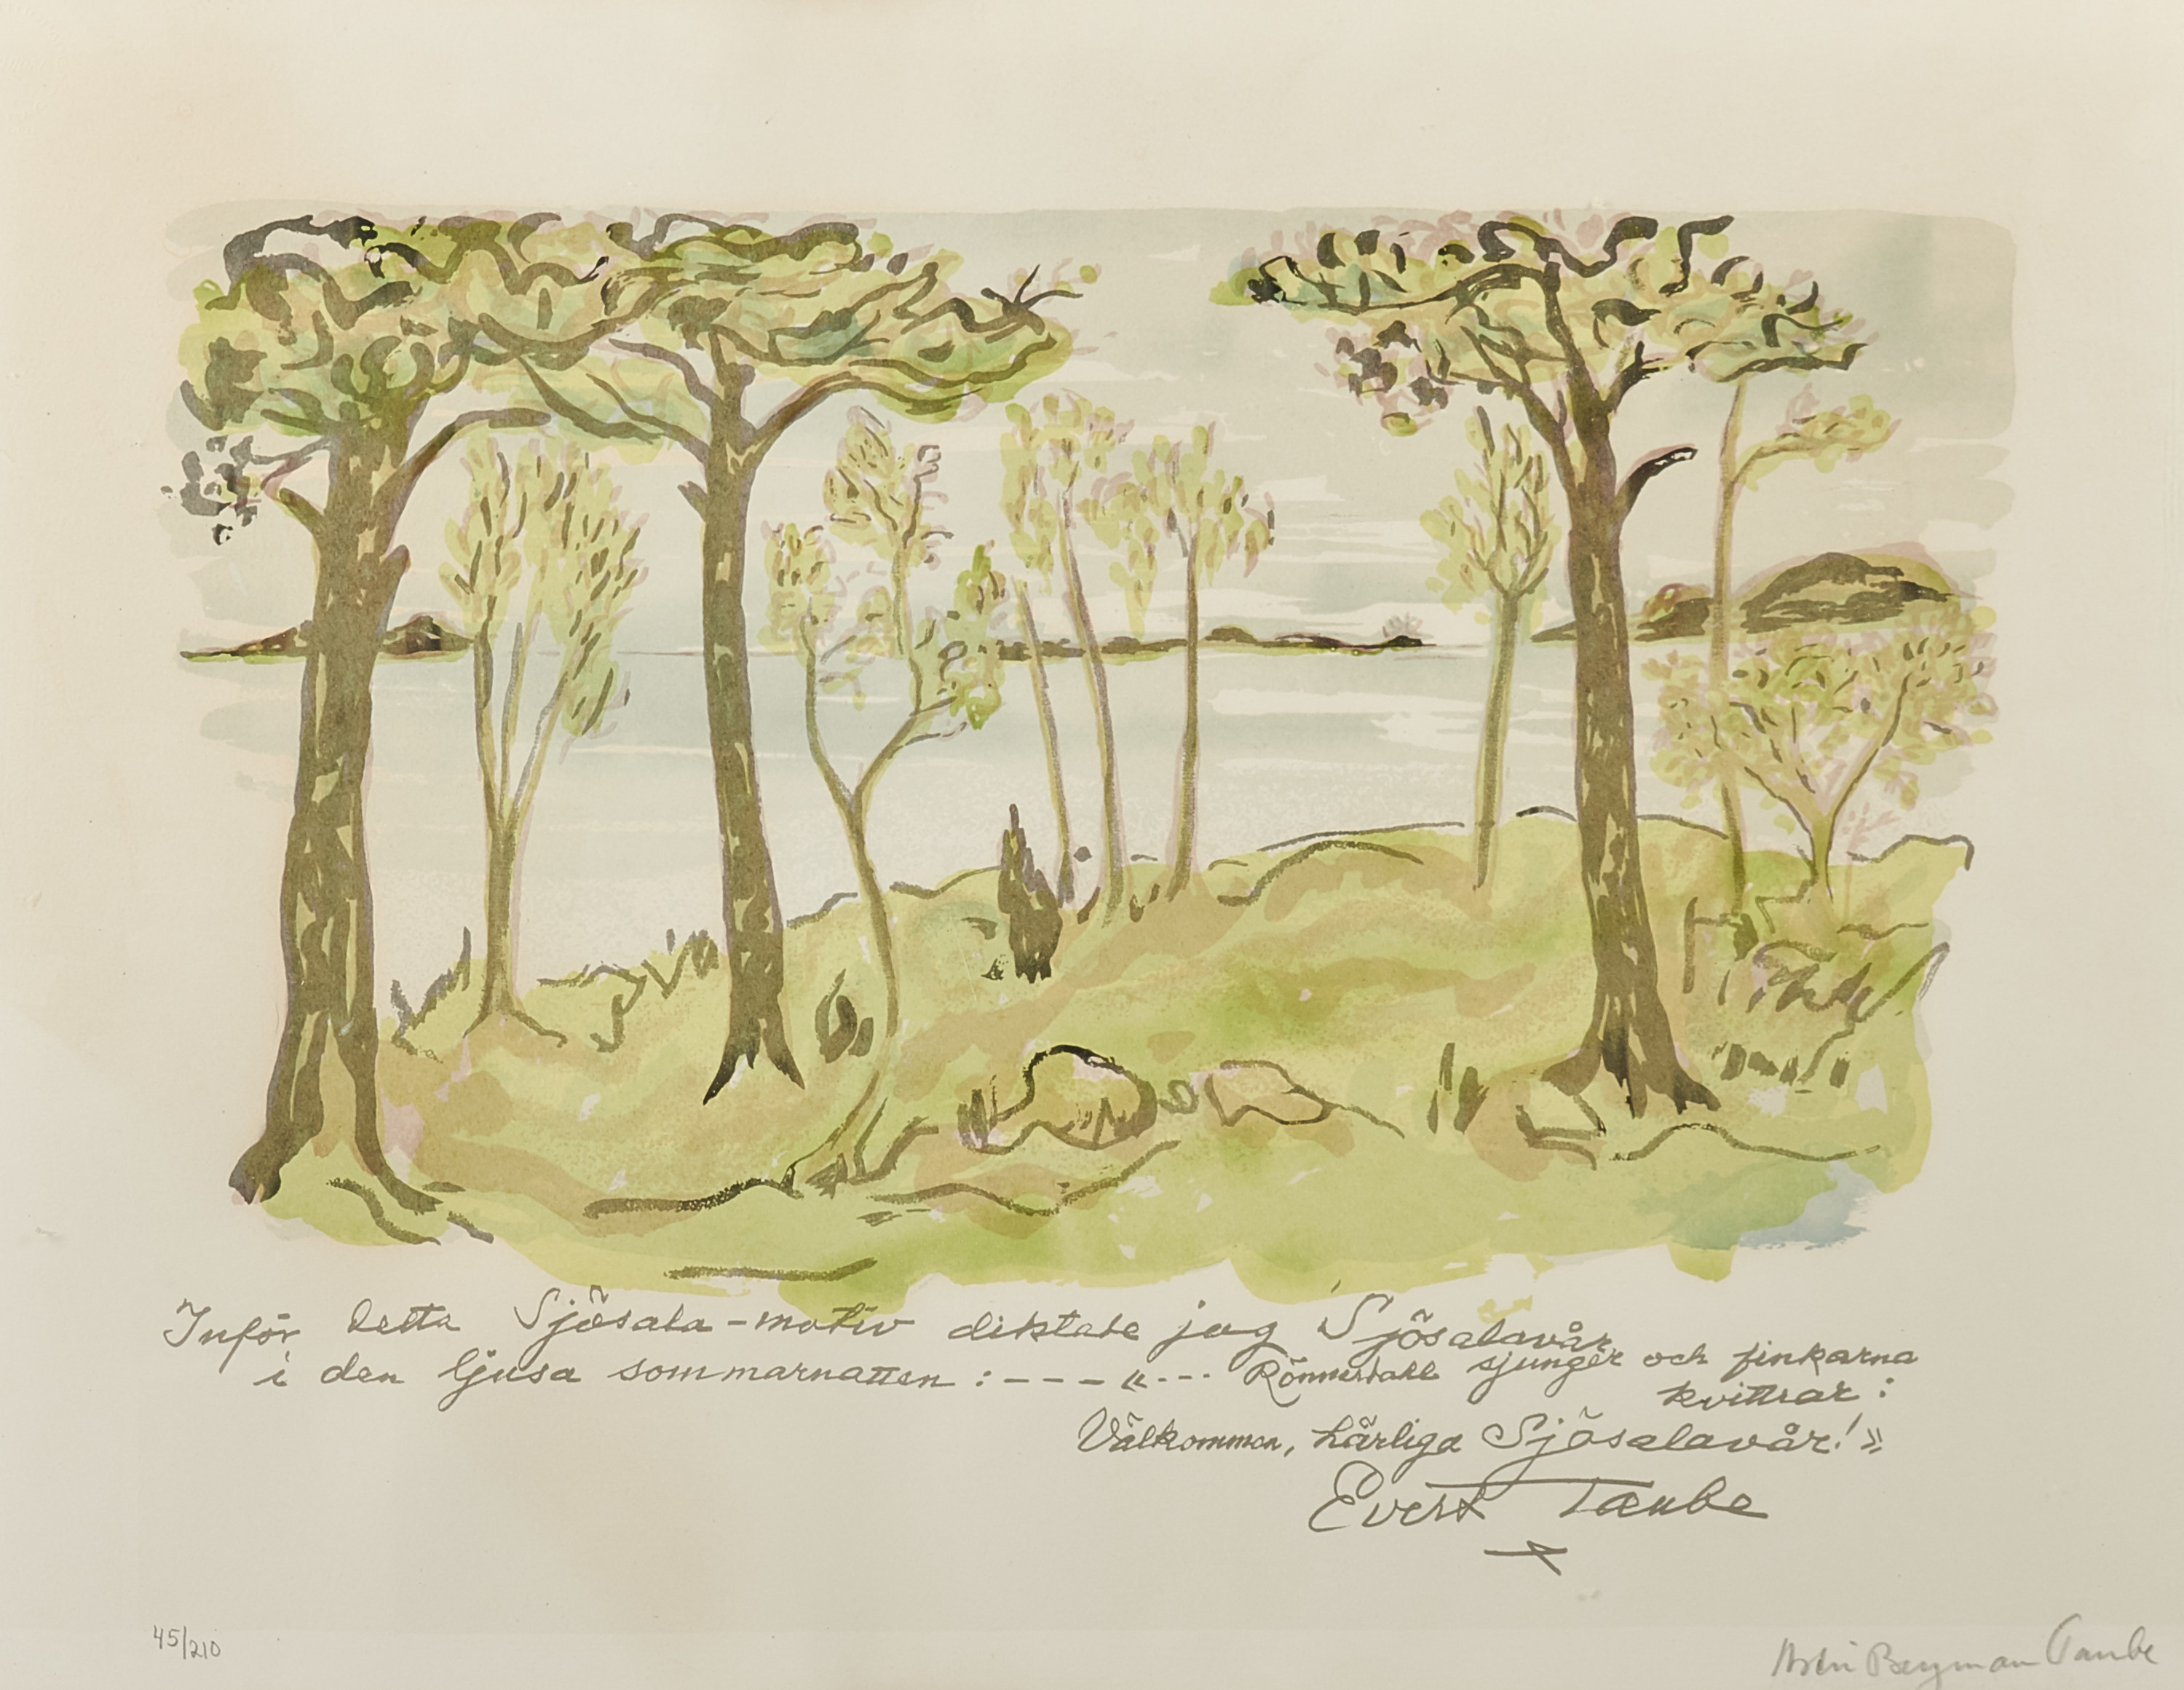 Inför detta Sjösala-motiv diktade jag Sjösalavår
i den ljusa sommarnatten : - - - « - - - Rönnerdahl sjunger och finkarna
kvittrar :
Välkommen, härliga Sjösalavår! »
Evert Taube
45/210
Astri Bergman Taube